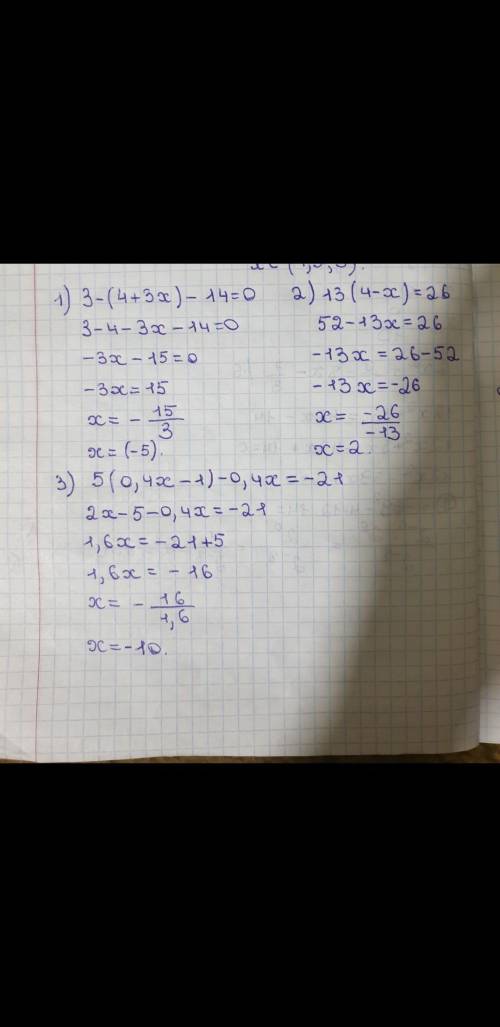 1) 3-(4+3x)-14=0
3-4-3x-14=0
-3x-15=0
-3x=15
x= - 15/3
x=(-5).
2) 13(4-x)=26
52-13x=26
-13x=26-52
-13x=-26
x= -26/-13
x=2.
3) 5(0,4x-1)-0,4x=-21
2x-5-0,4x=-21
1,6x=-21+5
1,6x= -16
x= - 16/1,6
x=-10.